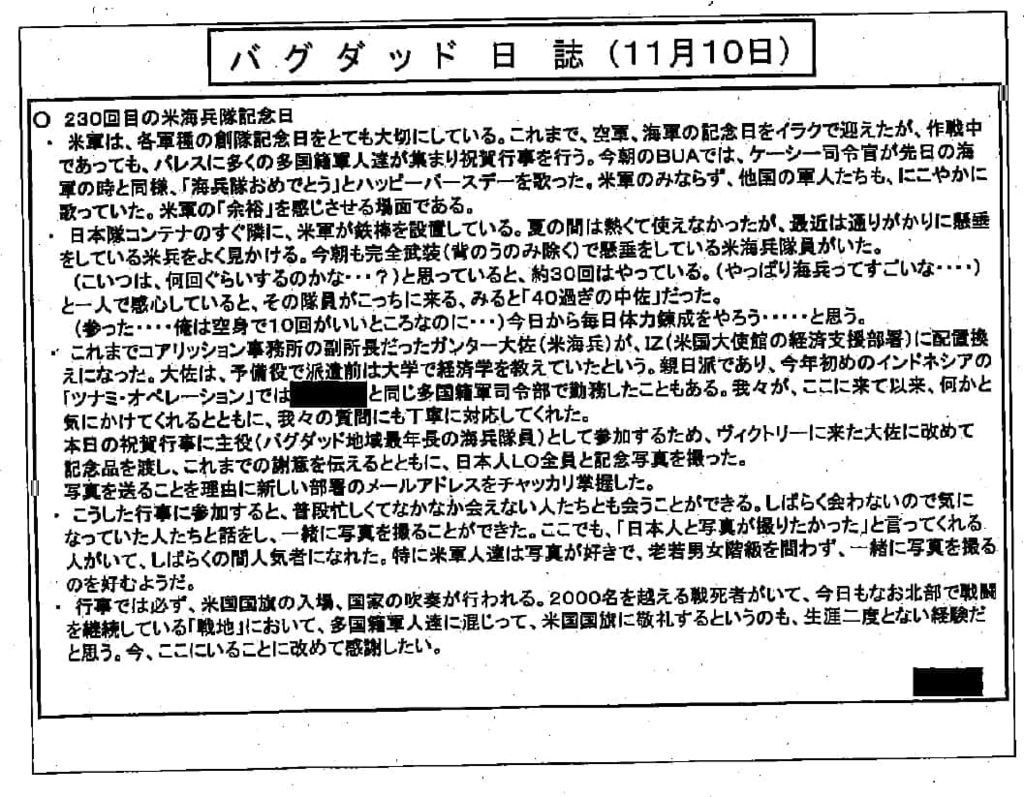 バグダッド日誌（11月10日）
○ 230回目の米海兵隊記念日
・ 米軍は、各軍種の創隊記念日をとても大切にしている。これまで、空軍、海軍の記念日をイラクで迎えたが、作戦中
であっても、パレスに多くの多国籍軍人達が集まり祝賀行事を行う。今朝のBUAでは、ケーシー司令官が先日の海
軍の時と同様、「海兵隊おめでとう」とハッピーバースデーを歌った。米軍のみならず、他国の軍人たちも、にこやかに
歌っていた。米軍の「余裕」を感じさせる場面である。
・ 日本隊コンテナのすぐ隣に、米軍が鉄棒を設置している。夏の間は熱くて使えなかったが、最近は通りがかりに懸垂
をしている米兵をよく見かける。今朝も完全武装（背のうのみ除く）で懸垂をしている米海兵隊員がいた。
（こいつは、何回ぐらいするのかな・・・？）と思っていると、約30回はやっている。（やっぱり海兵ってすごいな・・・・）
と一人で感心していると、その隊員がこっちに来る、みると「40過ぎの中佐」だった。
（参った・・・・俺は空身で10回がいいところなのに・・・）今日から毎日体力錬成をやろう・・・・・と思う。
・ これまでコアリッション事務所の副所長だったガンター大佐（米海兵）が、IZ（米国大使館の経済支援部署）に配置換
えになった。大佐は、予備役で派遣前は大学で経済学を教えていたという。親日派であり、今年初めのインドネシアの
「ツナミ・オペレーション」では と同じ多国籍軍司令部で勤務したこともある。我々が、ここに来て以来、何かと
気にかけてくれるとともに、我々の質問にも丁寧に対応してくれた。
本日の祝賀行事に主役（バグダッド地域最年長の海兵隊員）として参加するため、ヴィクトリーに来た大佐に改めて
記念品を渡し、これまでの謝意を伝えるとともに、日本人LO全員と記念写真を撮った。
写真を送ることを理由に新しい部署のメールアドレスをチャッカリ掌握した。
・ こうした行事に参加すると、普段忙しくてなかなか会えない人たちとも会うことができる。しばらく会わないので気に
なっていた人たちと話をし、一緒に写真を撮ることができた。ここでも、「日本人と写真が撮りたかった」と言ってくれる
人がいて、しばらくの間人気者になれた。特に米軍人達は写真が好きで、老若男女階級を問わず、一緒に写真を撮る
のを好むようだ。
・ 行事では必ず、米国国旗の入場、国家の吹奏が行われる。2000名を越える戦死者がいて、今日もなお北部で戦闘
を継続している「戦地」において、多国籍軍人達に混じって、米国国旗に敬礼するというのも、生涯二度とない経験だ
と思う。今、ここにいることに改めて感謝したい。